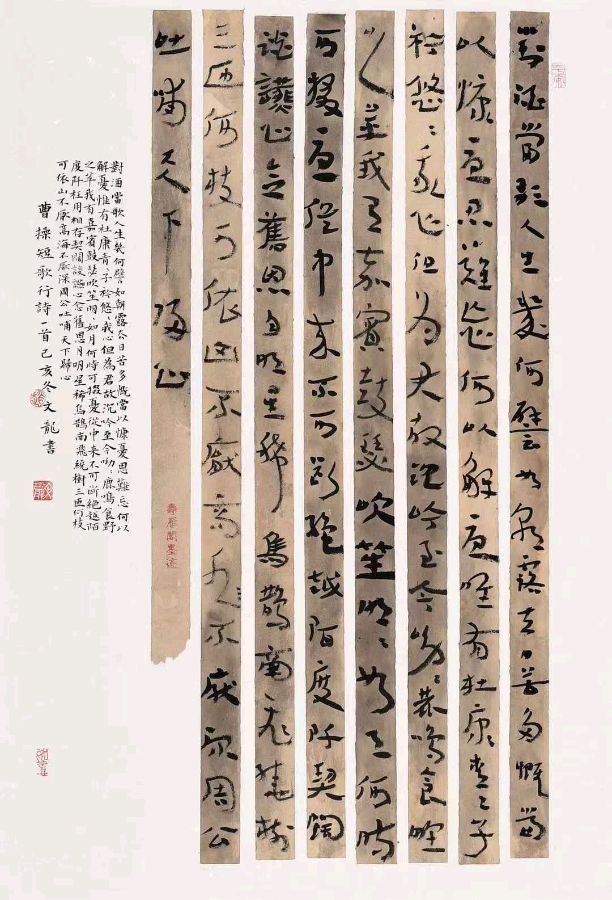 對酒當歌人生幾何譬如朝露去日苦多慨當
以慷憂思難忘何以解憂唯有杜康青々子
衿悠々我心但為君故沉吟至今呦々鹿鳴食野
之苹我有嘉賓鼓瑟吹笙明々如月何時
可掇憂從中來不可斷絕越陌度阡契闊
談讌心念舊恩月明星稀烏鵲南飛繞樹
三匝何枝可依山不厭高水不厭深周公
吐哺天下歸心
對酒當歌人生幾何譬如朝露去日苦多慨當以慷憂思難忘何以
解憂惟有杜康青々子衿悠々我心但為君故沉吟至今呦々鹿鳴食野
之苹我有嘉賓鼓瑟吹笙明々如月何時可掇憂從中來不可斷絕越陌
度阡枉用相存契闊談讌心念舊恩月明星稀烏鵲南飛繞樹三匝何枝
可依山不厭高海不厭深周公吐哺天下歸心
曹操短歌行詩一首己亥冬文龍書